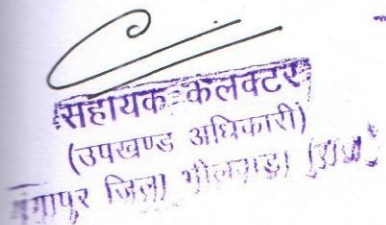 सहायक कलक्टर
(उपखण्ड अधिकारी)
गंगापुर जिला भीलवाड़ा (राज)